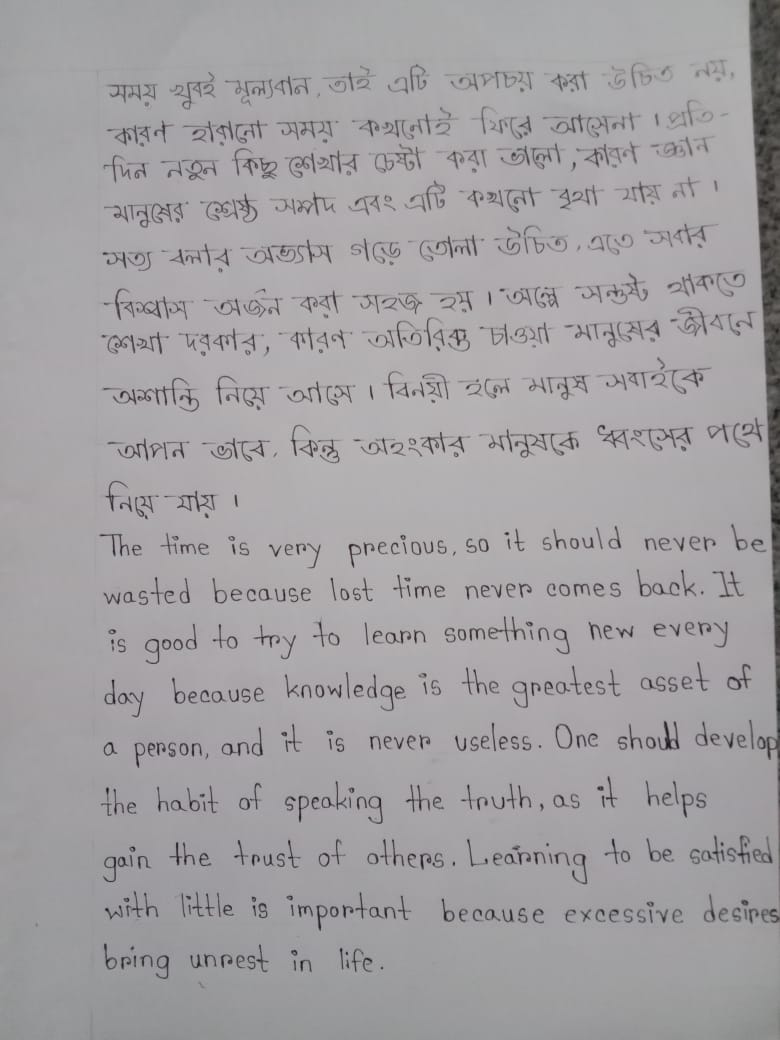 সময় খুবই মূল্যবান, তাই এটি অপচয় করা উচিত নয়,
কারণ হারানো সময় কখনোই ফিরে আসেনা । প্রতি-
দিন নতুন কিছু শেখার চেষ্টা করা ভালো, কারণ জ্ঞান
মানুষের শ্রেষ্ঠ সম্পদ এবং এটি কখনো বৃথা যায় না ।
সত্য বলার অভ্যাস গড়ে তোলা উচিত, এতে সবার
বিশ্বাস অর্জন করা সহজ হয় । অল্পে সন্তুষ্ট থাকতে
শেখা দরকার, কারণ অতিরিক্ত চাওয়া মানুষের জীবনে
অশান্তি নিয়ে আসে । বিনয়ী হলে মানুষ সবাইকে
আপন ভাবে, কিন্তু অহংকার মানুষকে ধ্বংসের পথে
নিয়ে যায় ।
The time is very precious, so it should never be
wasted because lost time never comes back. It
is good to try to learn something new every
day because knowledge is the greatest asset of
a person, and it is never useless. One should develop
the habit of speaking the truth, as it helps
gain the trust of others. Learning to be satisfied
with little is important because excessive desires
bring unrest in life.